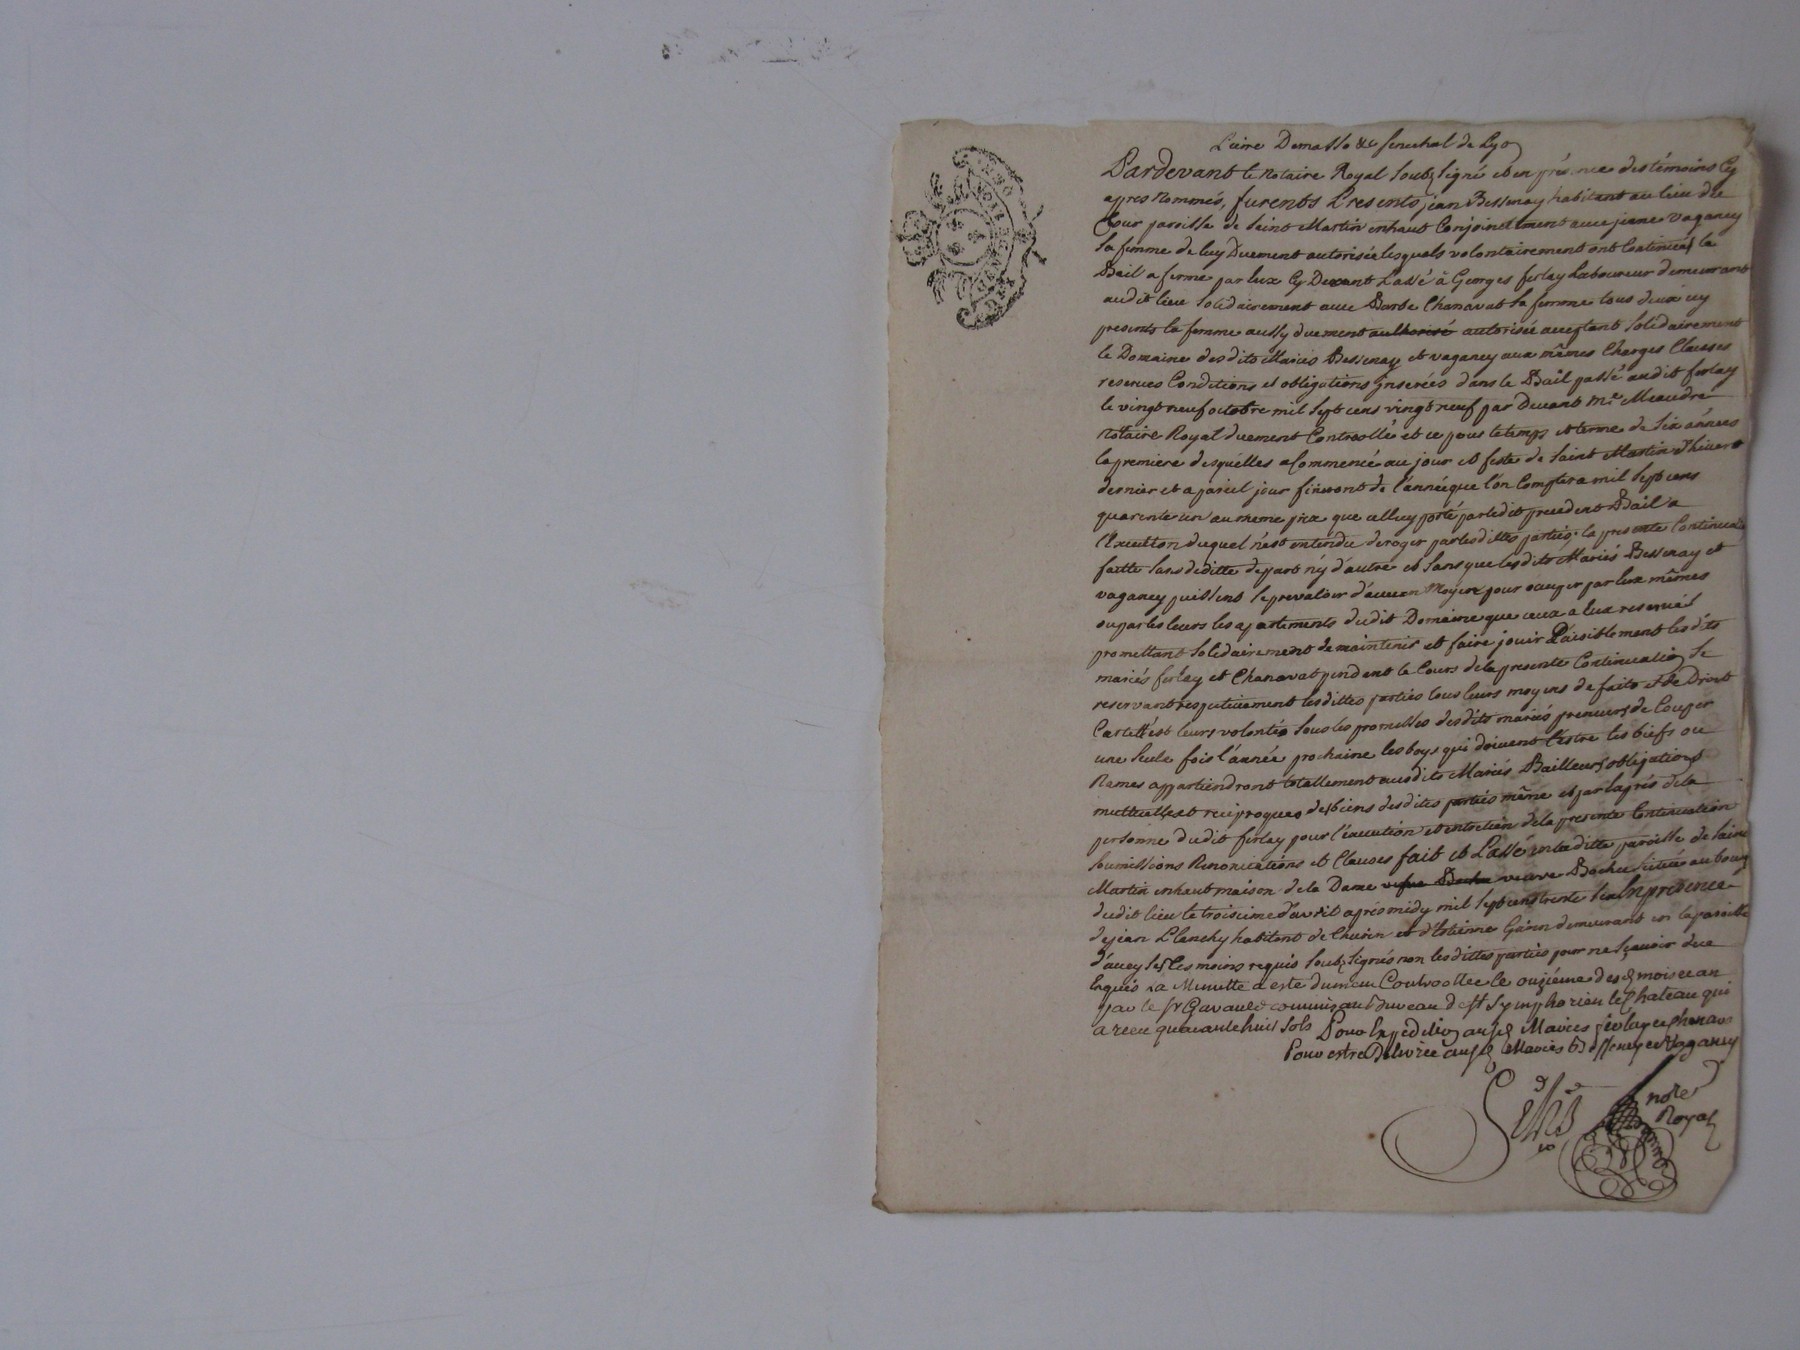 Pierre Demasso &c senechal de Lyon
Pardevant le notaire Royal soubz signé et en présence des témoins cy
apres nommés, furents Presents jean Bessenay habitant au lieu du
paroisse de saint Martin enhaut Conjoinctement avec jeanne vaganey
sa femme de luy Duement autorisée lesquels volontairement ont Continués le
Bail a ferme par eux cy Devant Passé à Georges ferlay Laboureur demeurant
audit lieu solidairement avec Barbe Chanavat sa femme tous deux icy
presents la femme aussy duement authorisé autorisée acceptant solidairement
le Domaine desdits Mariés Bessenay et vaganey aux mêmes Charges Clauses
reserves Conditions et obligations jnserées dans le Bail passé audit ferlay
le vingt neuf octobre mil sept cens vingt neuf par Devant me Meaudre
notaire Royal duement Controollé et ce pour le temps et terme de six années
la premiere desquelles a Commencé au jour et feste de saint Martin d'hiver
dernier et a pareil jour finiront de l'année que l'on Comptera mil sept cens
quarente un au meme prix que celluy porté par ledit precedent Bail a
l'Execution duquel n'est entendu deroger par lesdittes parties. la presente Continuation
faitte sans deditte de part ny d'autre et sans que lesdits Mariés Bessenay et
vaganey puissent se prevaloir d'aucun Moyen pour occuper par eux mêmes
ou par les leurs les apartements dudit Domaine que ceux a eux reservés
promettant solidairement de maintenir et faire jouir Paisiblement lesdits
mariés ferlay et Chanavat pendent le Cours de la presente Continuation se
reservant respectivement lesdittes parties tous leurs moyens de faits et de Droit
Car tell'est leurs volontés sous les promesses desdits mariés preneurs de Couper
une seule fois l'année prochaine les boys qui doivent l'estre les biefs ou
Rames appartiendront totallement ausdits Mariés Bailleurs obligations
mutuelles et reciproques des biens desdites parties même et par exprés de la
personne dudit ferlay pour l'éxecution et entretien de la presente Continuation
soumissions Renonciations et Clauses fait et Passé en laditte paroisse de saint
Martin enhaut maison de la Dame vefve Bochu veuve Bochu située au bourg
dudit lieu le troisieme d'avril aprés midy mil sept cens trente six En presence
de jean Planchy habitant de et d'Estienne Garin demeurant en la paroisse
d'aveyses témoins requis soubz signés non lesdittes parties pour ne sçavoir de ce
Enquis La Minutte a este dument Controollee le onziéme desd mois et an
par le sr Gavault commis au bureau de st Symphorien le Chateau qui
a receu quarante huit sols Pour Expedition ausd Mariés ferlay et chanavat
Pour estre Delivrée ausd Mariés Bessenay et Vaganey
notre
Royal